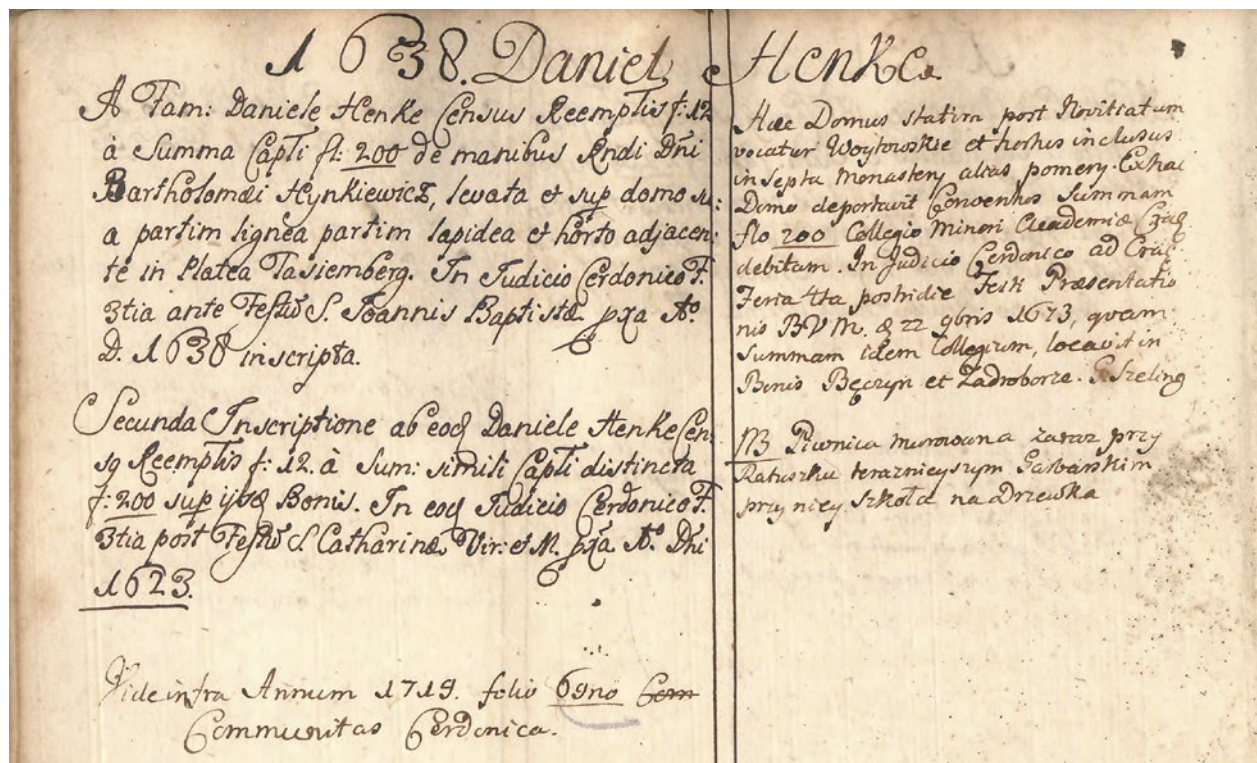 1638. Daniel Henke
A Fam: Daniele Henke Census Reemptis f: 12
à Summa Capti fl: 200 de manibus Rndi Dni
Bartholomæi Hynkiewicz, levata et sup domo su:
a partim lignea partim lapidea et horto adjacen:
te in Platea Tasiemberg. In Judicio Cerdonico F.
3tia ante Festū S. Joannis Baptistæ pxa Aº
D. 1638 inscripta.
Secunda Inscriptione ab eoq Daniele Henke Cen:
sq Reemptis f: 12. à Sum: simili Capti distincta
f: 200 sup Bonis. In eoq Judicio Cerdonico F.
3tia post Festū S. Catharinæ Vir: et M. pxa Aº Dni
1623.
Vide infra Annum 1719. folio 69no Com
Communitas Cerdonica.
Hæc Domus statim post Novitiatum
vocatur Woytowskie et hortus inclusus
in septa Monastery alias pomery. Exhac
Domo deportavit Conventus Summam
flo 200 Collegio Minori Academiæ
debitam. In Judicio Cerdonico ad Crac:
Feria 4ta postridie Festi Præsentatio
nis BVM. 22 9bris 1673, qvam
Summam idem Collegium, locavit in
Bonis Bęczyn et Zadroborze.
NB Piwnica murowana zaraz przy
Ratuszku teraznieyszym Garbarskim
przy niey szkoła na Drzewka